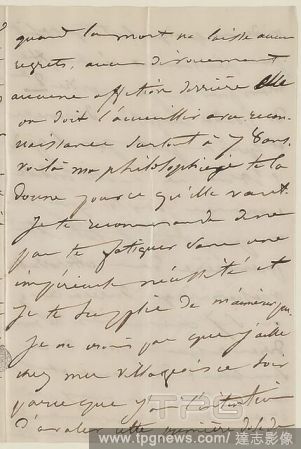 quand la mort ne laisse aucun
regrets, aucun dévouement
aucune affection derrière elle
on doit l'accueillir avec recon-
naissance surtout à 78 ans.
voilà ma philosophie je te la
donne pour ce qu'elle vaut.
Je te recommande de ne
pas te fatiguer sans une
impérieuse nécessité et
je te supplie de m'aimer
Je ne crois pas que j'aille
chez mes villageois ce soir
parce que j'ai l'intention
d'avaler cette dernière
TPG
www.tpgnews.com/ 達志影像